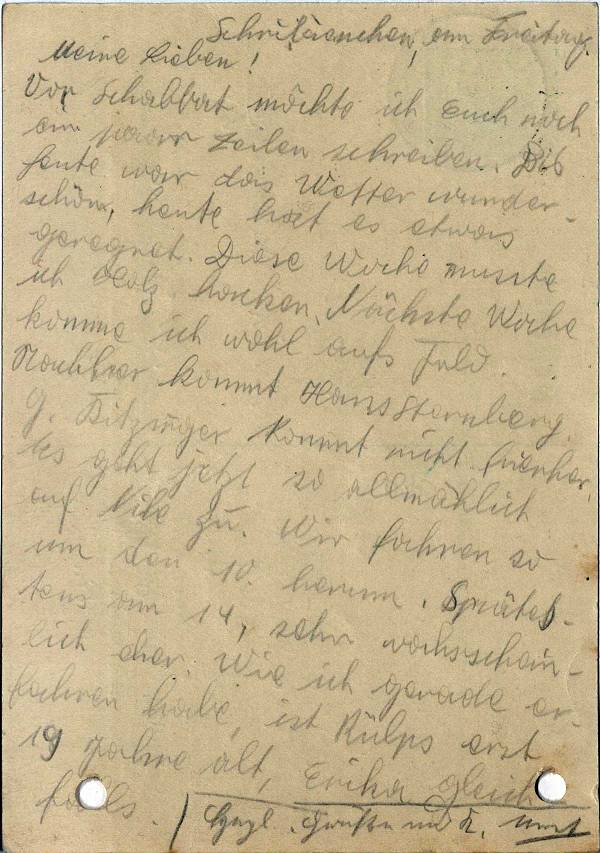 am Freitag.
Meine Lieben!
Vor Schabbat möchte ich Euch noch
ein paar Zeilen schreiben. Bis
heute war das Wetter wunder-
schön, heute hat es etwas
geregnet. Diese Woche musste
ich Holz hacken. Nächste Woche
komme ich wohl aufs Feld.
Nachher kommt Hans Sternberg.
G. Kitzinger kommt nicht hierher.
Es geht jetzt so allmählich
auf zu. Wir fahren so
um den 10. herum. Spätes-
tens am 14, sehr wahrschein-
lich eher. Wie ich gerade er-
fahren habe, ist Külps erst
19 Jahre alt, Erika gleich
falls.
Grüße und K.